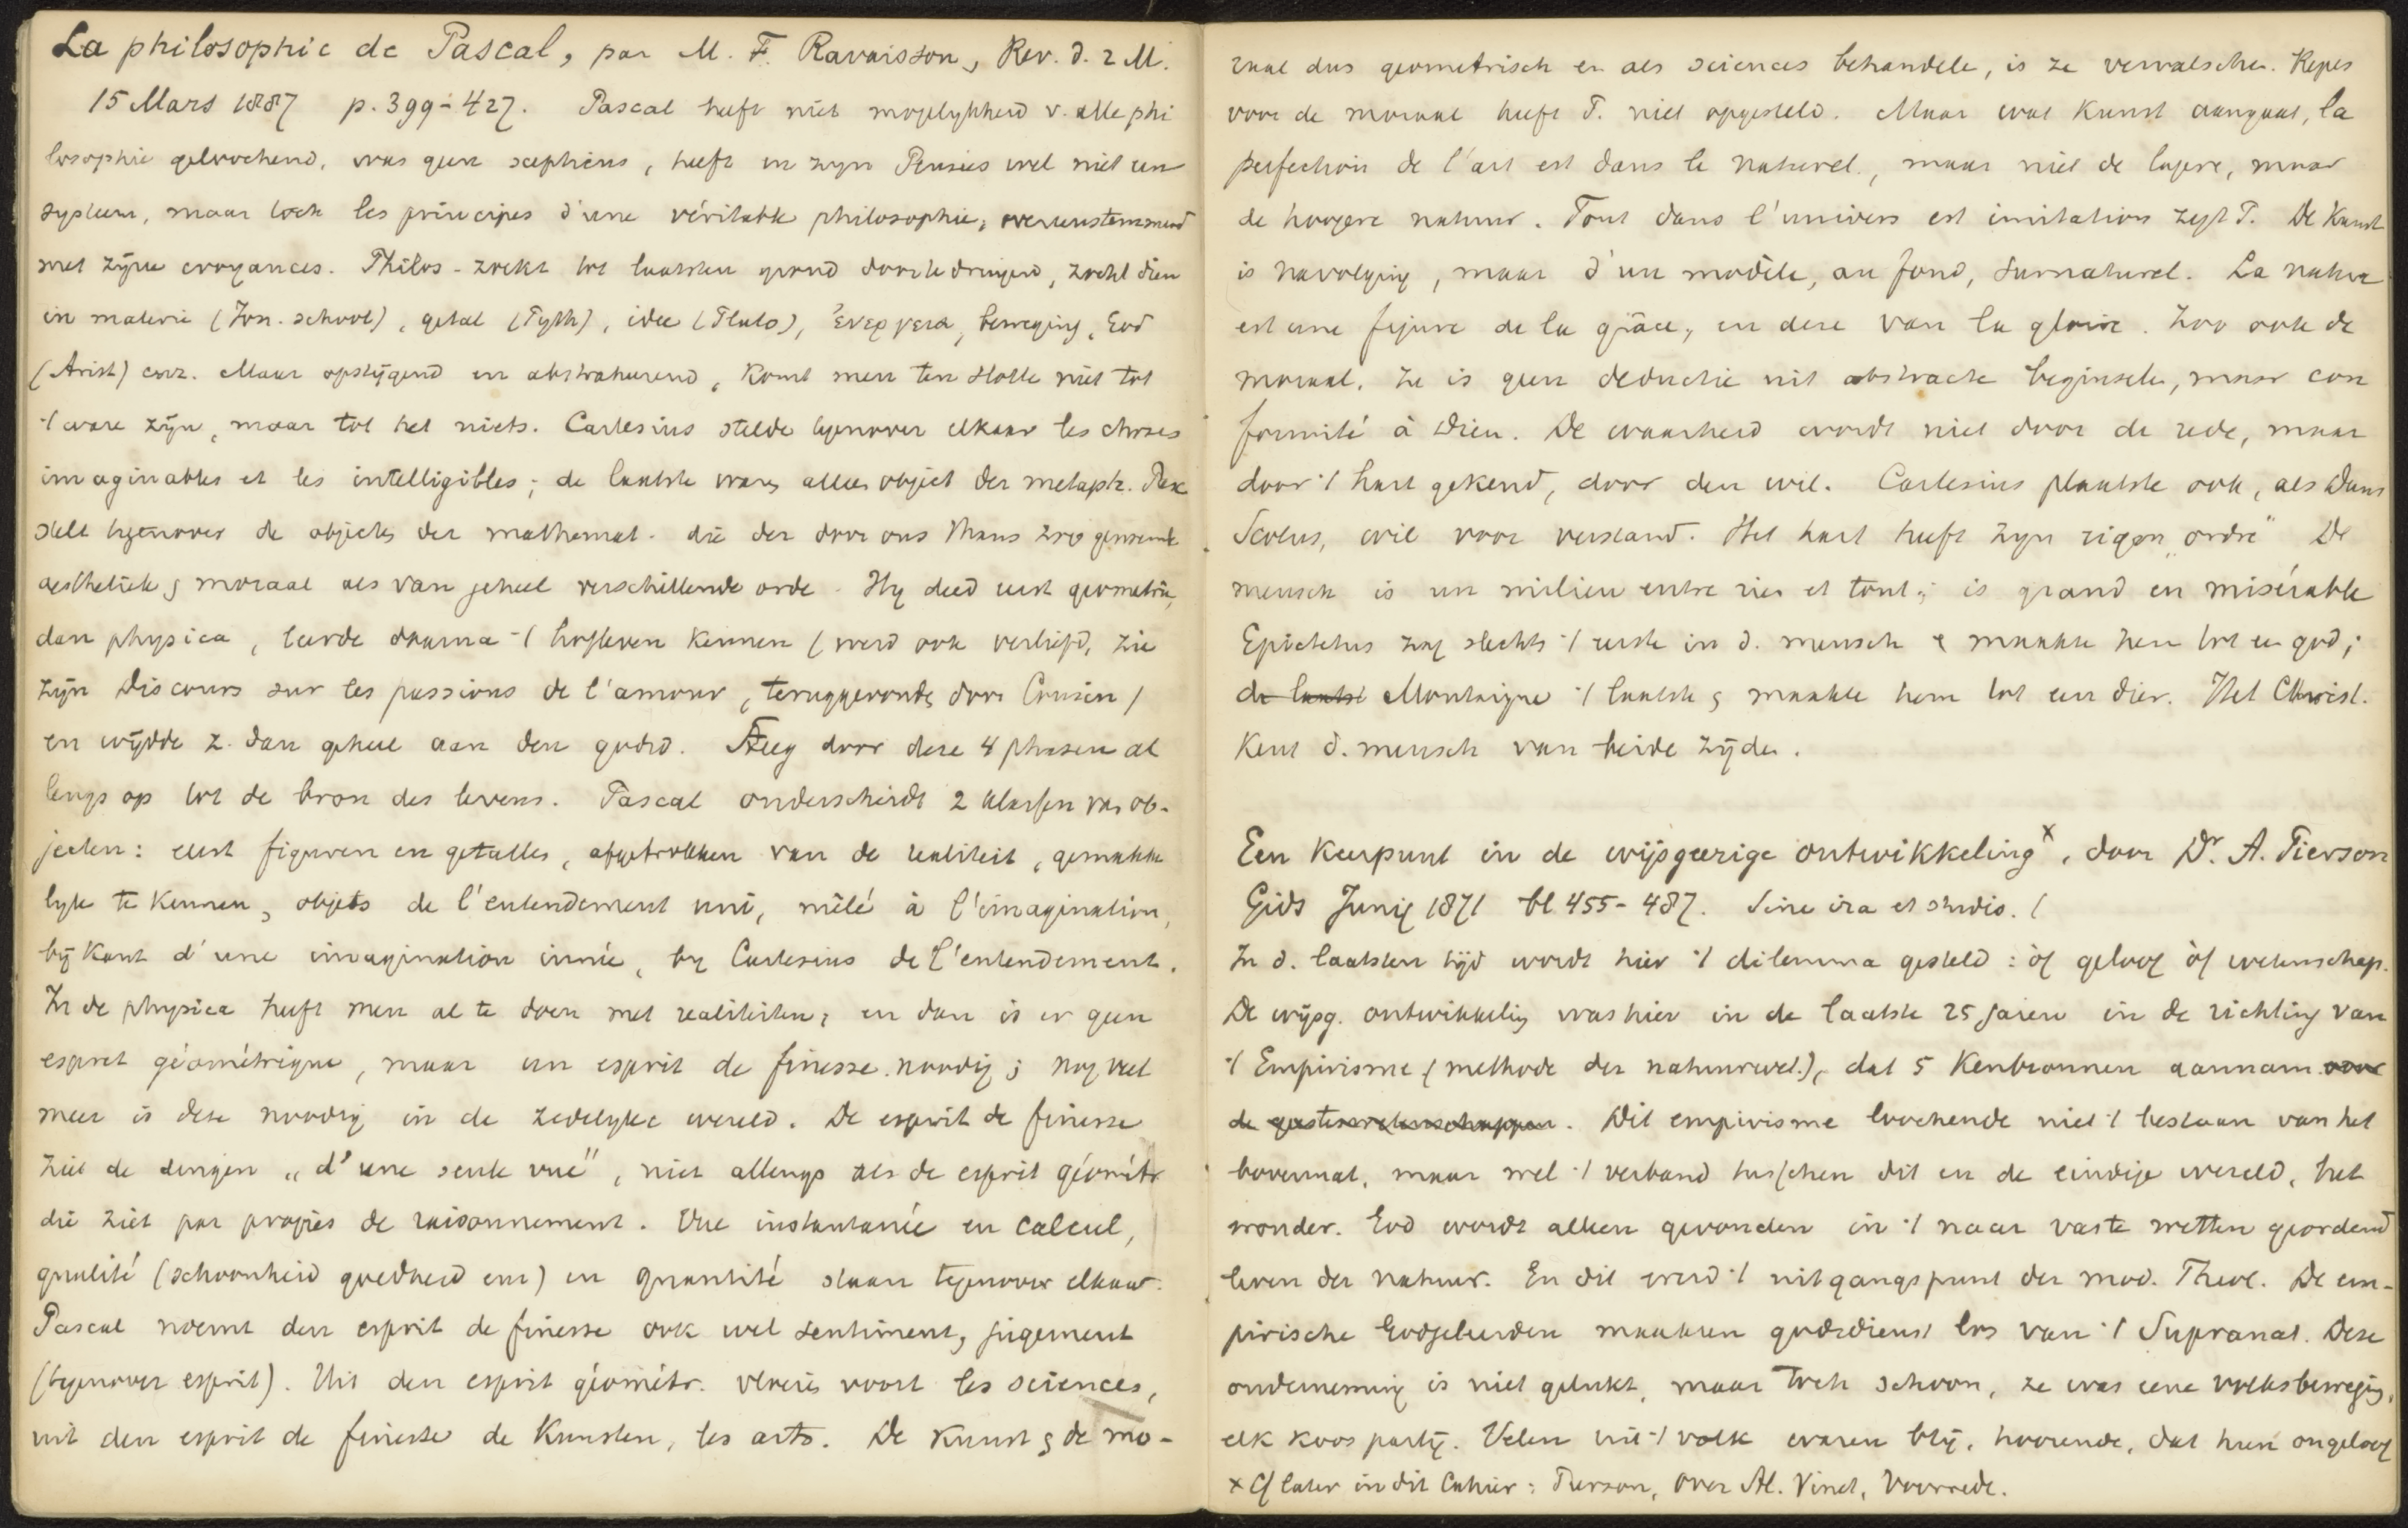 La philosophie de Pascal, par M. F. Ravaisson, Rev. d. 2 M.
15 Mars 1887 p. 399-427. Pascal heeft niet mogelykheid v. alle phi
losophie geloochend, was geen scepticus, heeft in zyn Pensées wel niet een
systeem, maar toch les principes d'une véritable philosophie, overeenstemmend
met zijne croyances. Philos. zoekt tot laatsten grond door te dringen, zoekt dien
in materie (Ion. school), getal (Pyth), idee (Plato), ἐνεργεια, beweging, God
(Arist) enz. Maar opstijgend en abstraheerend, komt men ten slotte niet tot
't ware zijn, maar tot het niets. Cartesius stelde tegenover elkaar les choses
imaginables et les intelligibles; de laatste waren alleen object der metaph. Pasc
stelt tegenover de objecten der mathemat. die der door ons thans zoo genoemde
aesthetiek & moraal als van geheel verschillende orde. Hy deed eerst geometrie,
dan physica, leerde daarna 't hofleven kennen (werd ook verliefd, zie
zijn Discours sur les passions de l'amour, teruggevonden door Cousin)
en wijdde z. dan geheel aan den godsd. Steeg door deze 4 phasen al
lengs op tot de bron des levens. Pascal onderscheidt 2 klassen van ob-
jecten: eerst figuren en getallen, afgetrokken van de realiteit, gemakke
lyk te kennen, objets de l'entendement uni, mêlé à l'imagination,
bij Kant d'une imagination innée, by Cartesius de l'entendement.
In de physica heeft men al te doen met realiteiten; en dan is er geen
esprit géométrique, maar un esprit de finesse noodig; nog veel
meer is deze noodig in de zedelyke wereld. De esprit de finesse
ziet de dingen „d'une seule vue", niet allengs als de esprit géométr
die ziet par progrès de raisonnement. Vue instantanée en calcul,
qualité (schoonheid goedheid enz) en quantité staan tegenover elkaar.
Pascal noemt den esprit de finesse ook wel sentiment, jugement
(tegenover esprit). Uit den esprit géométr. vloeien voort les sciences,
uit den esprit de finesse de Kunsten, les arts. De Kunst & de mo-
raal dus geometrisch en als sciences behandelen, is ze vervalschen. Regels
voor de moraal heeft P. niet opgesteld. Maar wat Kunst aangaat, la
perfection de l'art est dans le naturel, maar niet de lagere, maar
de hoogere natuur. Tout dans l'univers est imitation zegt P. De Kunst
is navolging, maar d'un modèle, au fond, surnaturel. La nature
est une figure de la grâce, en deze van la gloire. Zoo ook de
moraal. Ze is geen deductie uit abstracte beginselen, maar con
formité à Dieu. De waarheid wordt niet door de rede, maar
door 't hart gekend, door den wil. Cartesius plaatste ook, als Duns
Scotus, wil voor verstand. Het hart heeft zyn eigen „ordre" De
mensch is un milieu entre rien et tout; is grand en misérable
Epictetus zag slechts 't eerste in d. mensch & maakte hem tot een god;
de laatst Montaigne 't laatste & maakte hem tot een dier. Het Christ.
Kent d. mensch van beide zijden.
Een Keerpunt in de wijsgeerige ontwikkeling x, door Dr. A. Pierson
Gids Junij 1871 bl 455-487. Sine ira et studio. (
In d. laatsten tijd wordt hier 't dilemma gesteld: òf geloof òf wetenschap.
De wijsg. ontwikkeling was hier in de laatste 25 jaren in de richting van
't Empirisme (methode der natuurwet.), dat 5 Kenbronnen aannam voor
de geesteswetenschappen. Dit empirisme loochende niet 't bestaan van het
bovennat. maar wel 't verband tusschen dit en de eindige wereld, het
wonder. God wordt alleen gevonden in 't naar vaste wetten geordend
leven der natuur. En dit werd 't uitgangspunt der mod. Theol. De em-
pirische Godgeleerden maakten godsdienst los van 't Supranat. Deze
onderneming is niet gelukt, maar toch schoon, ze was eene volksbeweging,
elk koos partij. Velen uit 't volk waren blij, hoorende, dat hun ongeloof
x Cf later in dit Cahier: Pierson, over Al. Vinet, Voorrede.